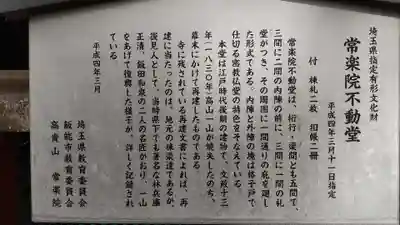 埼玉県指定有形文化財
常楽院不動堂
平成四年三月十一日指定
付 棟札二枚 招帳二冊
常楽院不動堂は、桁行・梁間とも五間で、
三間に二間の内陣の前に、三間に一間の礼
堂がつき、その周囲に一間通りの庇を廻し
た形式である。内陣と外陣の境は格子戸で
仕切る密教仏堂の特色をそなえている。
本堂は江戸時代後期の建物で、文政十三
年(一八三〇年)高山一山が焼失したのち、
幕末にかけて再建したものである。
寺に残されている再建文書によれば、再
建に当たったのは、地元の棟梁達であるが、
後見人として当時県下でも著名な林兵庫
正清、飯田和泉の二人の名匠がおり、一山
をあげて復興した様子が、詳しく記録され
ている。
平成四年三月
埼玉県教育委員会
飯能市教育委員会
高貴山 常楽院